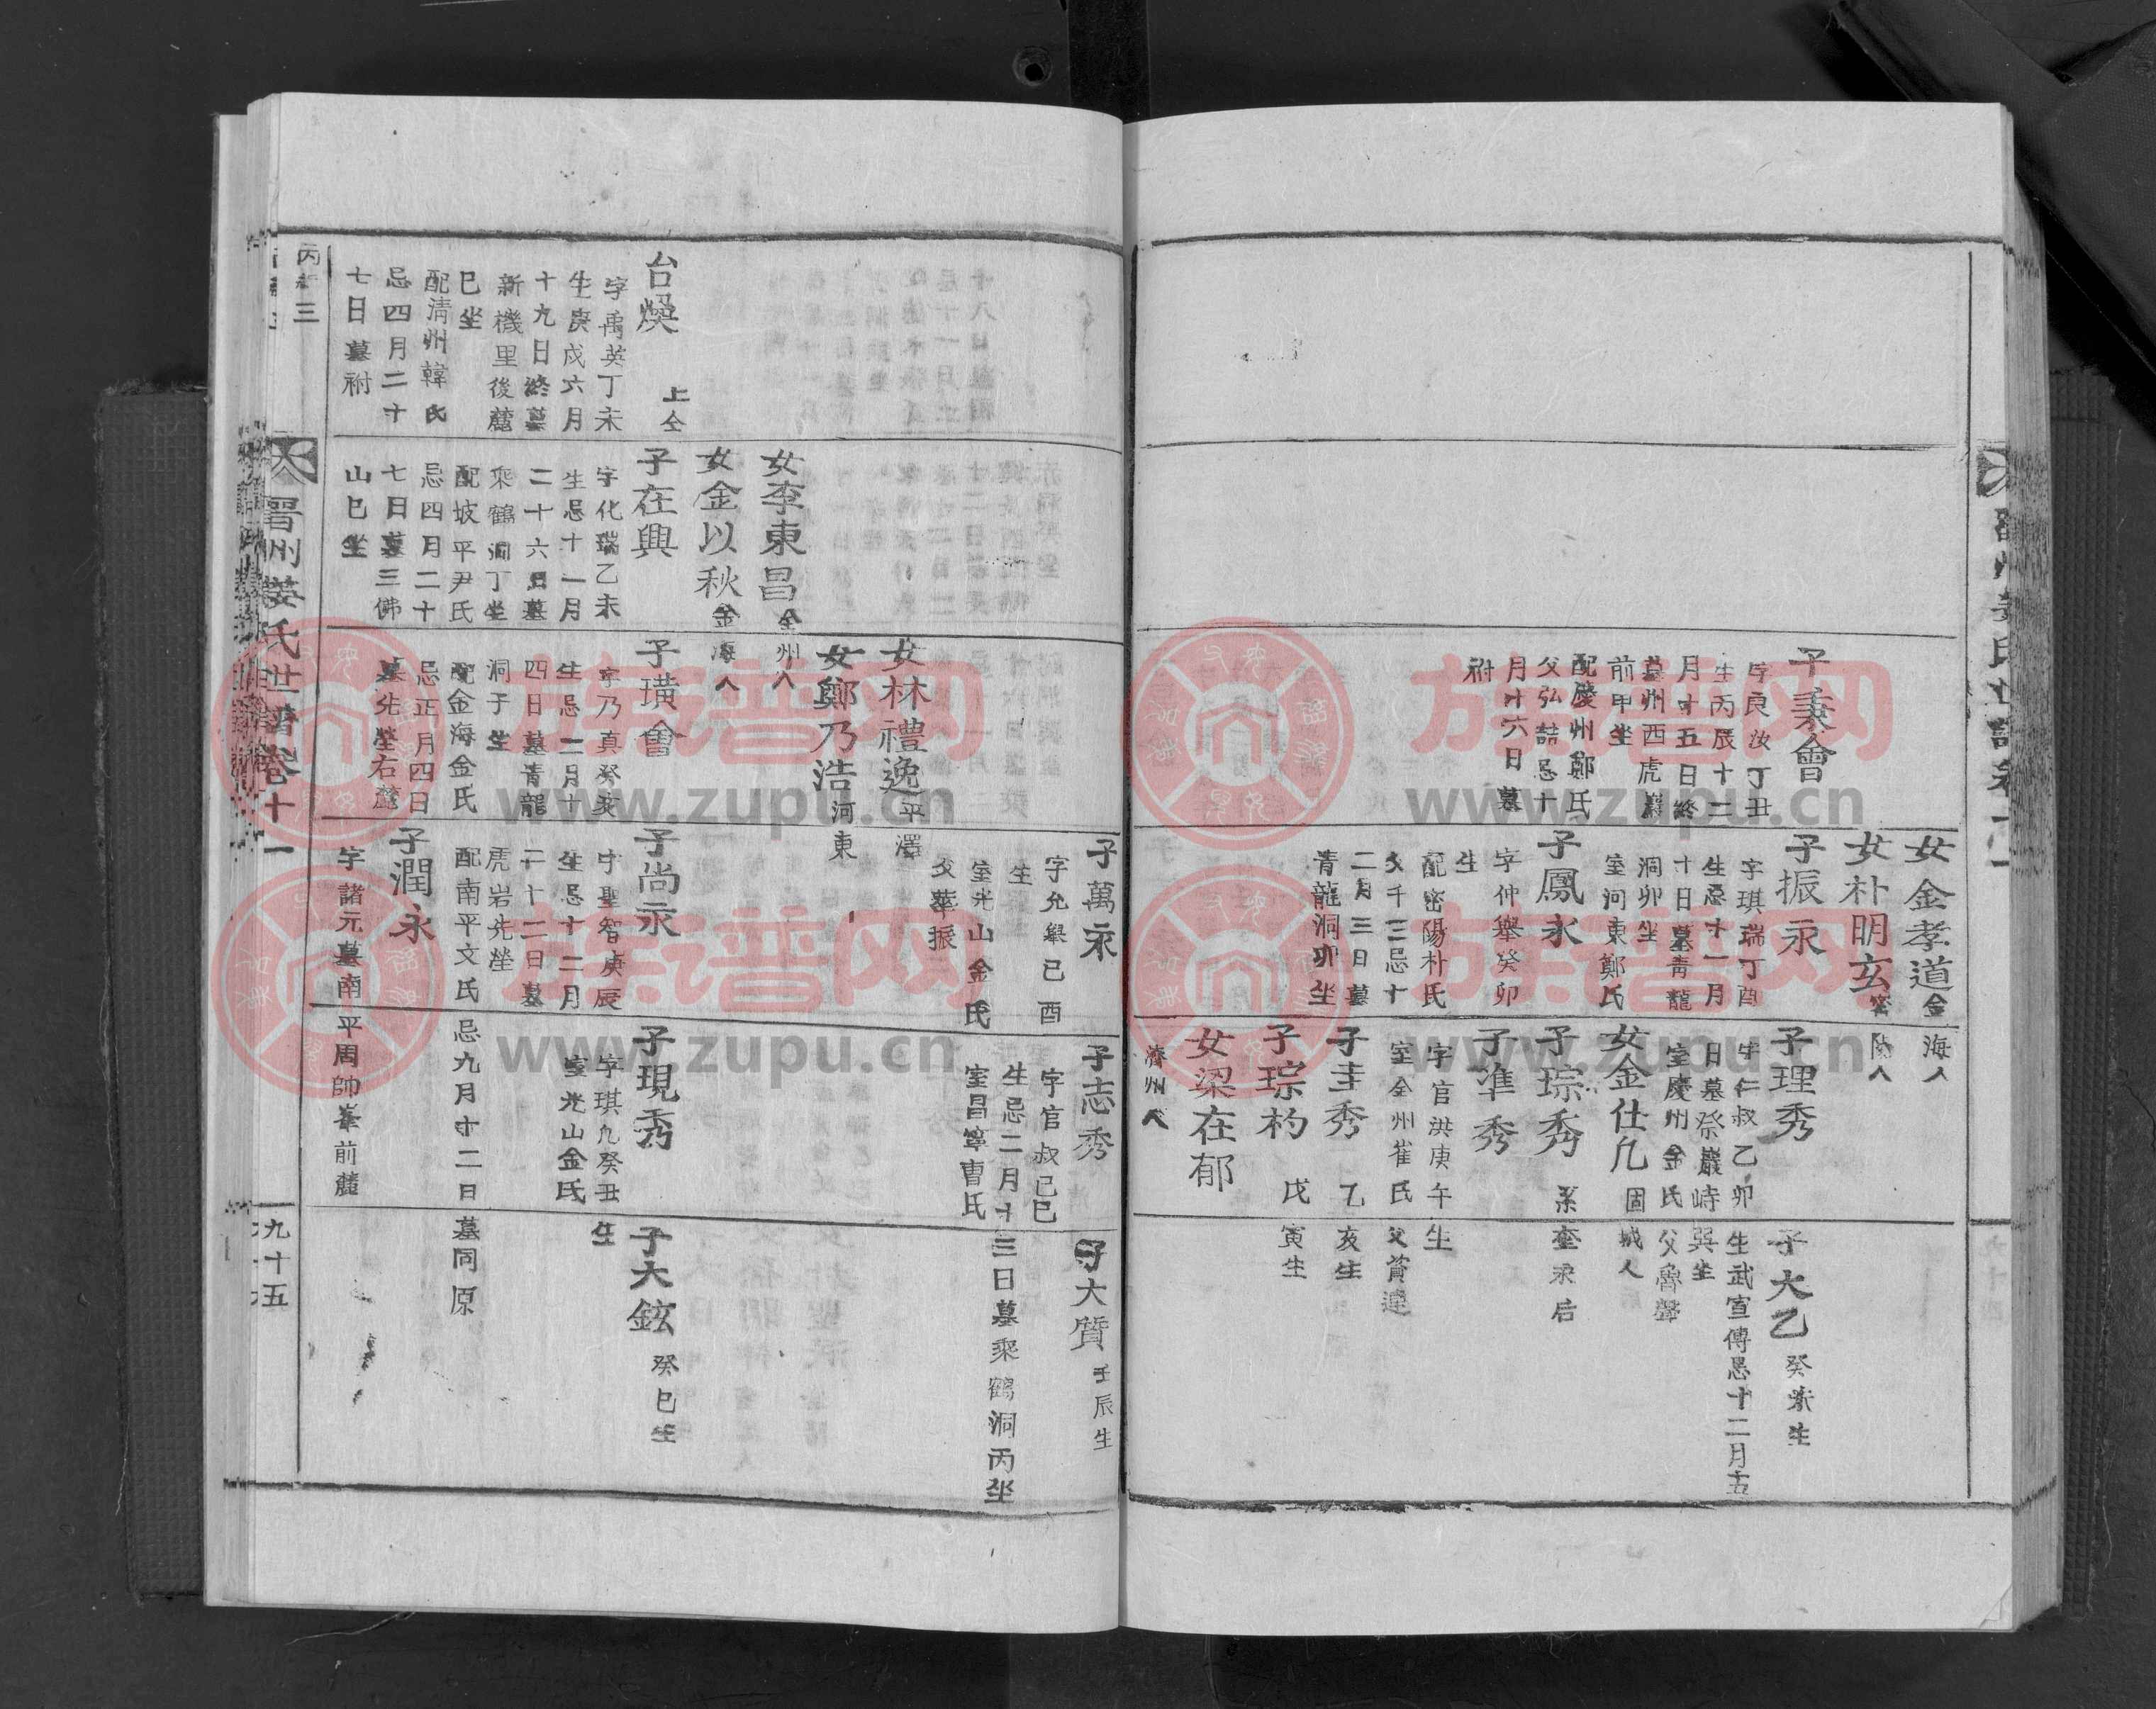 子秉會
字良汝丁丑
生丙辰十二
月廿五日終
墓州西虎巖
前甲坐
配慶州鄭氏
父弘喆忌十
月廿六日墓
祔
女金孝道金海人
女朴明玄密陽人
子振永
字琪瑞丁酉
生忌十一月
十日墓青龍
洞卯坐
室河東鄭氏
子鳳永
字仲舉癸卯
生
配密陽朴氏
父千三忌十
二月三日墓
青龍洞卯坐
子理秀
字仁叔乙卯
生武宣傳忌十二月十五
日墓祭巖峙巽坐
室慶州金氏父魯聲
女金仕凡固城人
子琮秀系奎永后
子準秀
字官洪庚午生
室全州崔氏父資達
子圭秀乙亥生
子琮杓戊寅生
女梁在郁
濟州人
子大乙癸未生
子萬永
字允舉己酉
生
室光山金氏
父華振
子志秀
字官叔己巳
生忌二月十三日墓乘鶴洞丙坐
室昌寧曹氏
子大質壬辰生
女林禮逸平澤
女鄭乃浩河東
女李東昌全州人
女金以秋金海人
台煥上仝
字禹英丁未
生庚戌六月
十九日終墓
新機里後麓
巳坐
配清州韓氏
忌四月二十
七日墓祔
子在興
字化瑞乙未
生忌十一月
二十六日墓
乘鶴洞丁坐
配坡平尹氏
忌四月二十
七日墓三佛
山巳坐
子璜會
字乃真癸亥
生忌二月十
四日墓青龍
洞子坐
配金海金氏
忌正月四日
墓先塋右麓
子尚永
字聖智庚辰
生忌十二月
二十二日墓
虎岩先塋
配南平文氏忌九月十二日墓同原
子潤永
字諸元墓南平周帥峯前麓
子現秀
字琪九癸丑生
室光山金氏
子大鉉癸巳生
晉州姜氏世譜卷十一
九十五
族谱网
www.zupu.cn
族谱网
www.zupu.cn
族谱网
www.zupu.cn
族谱网
www.zupu.cn